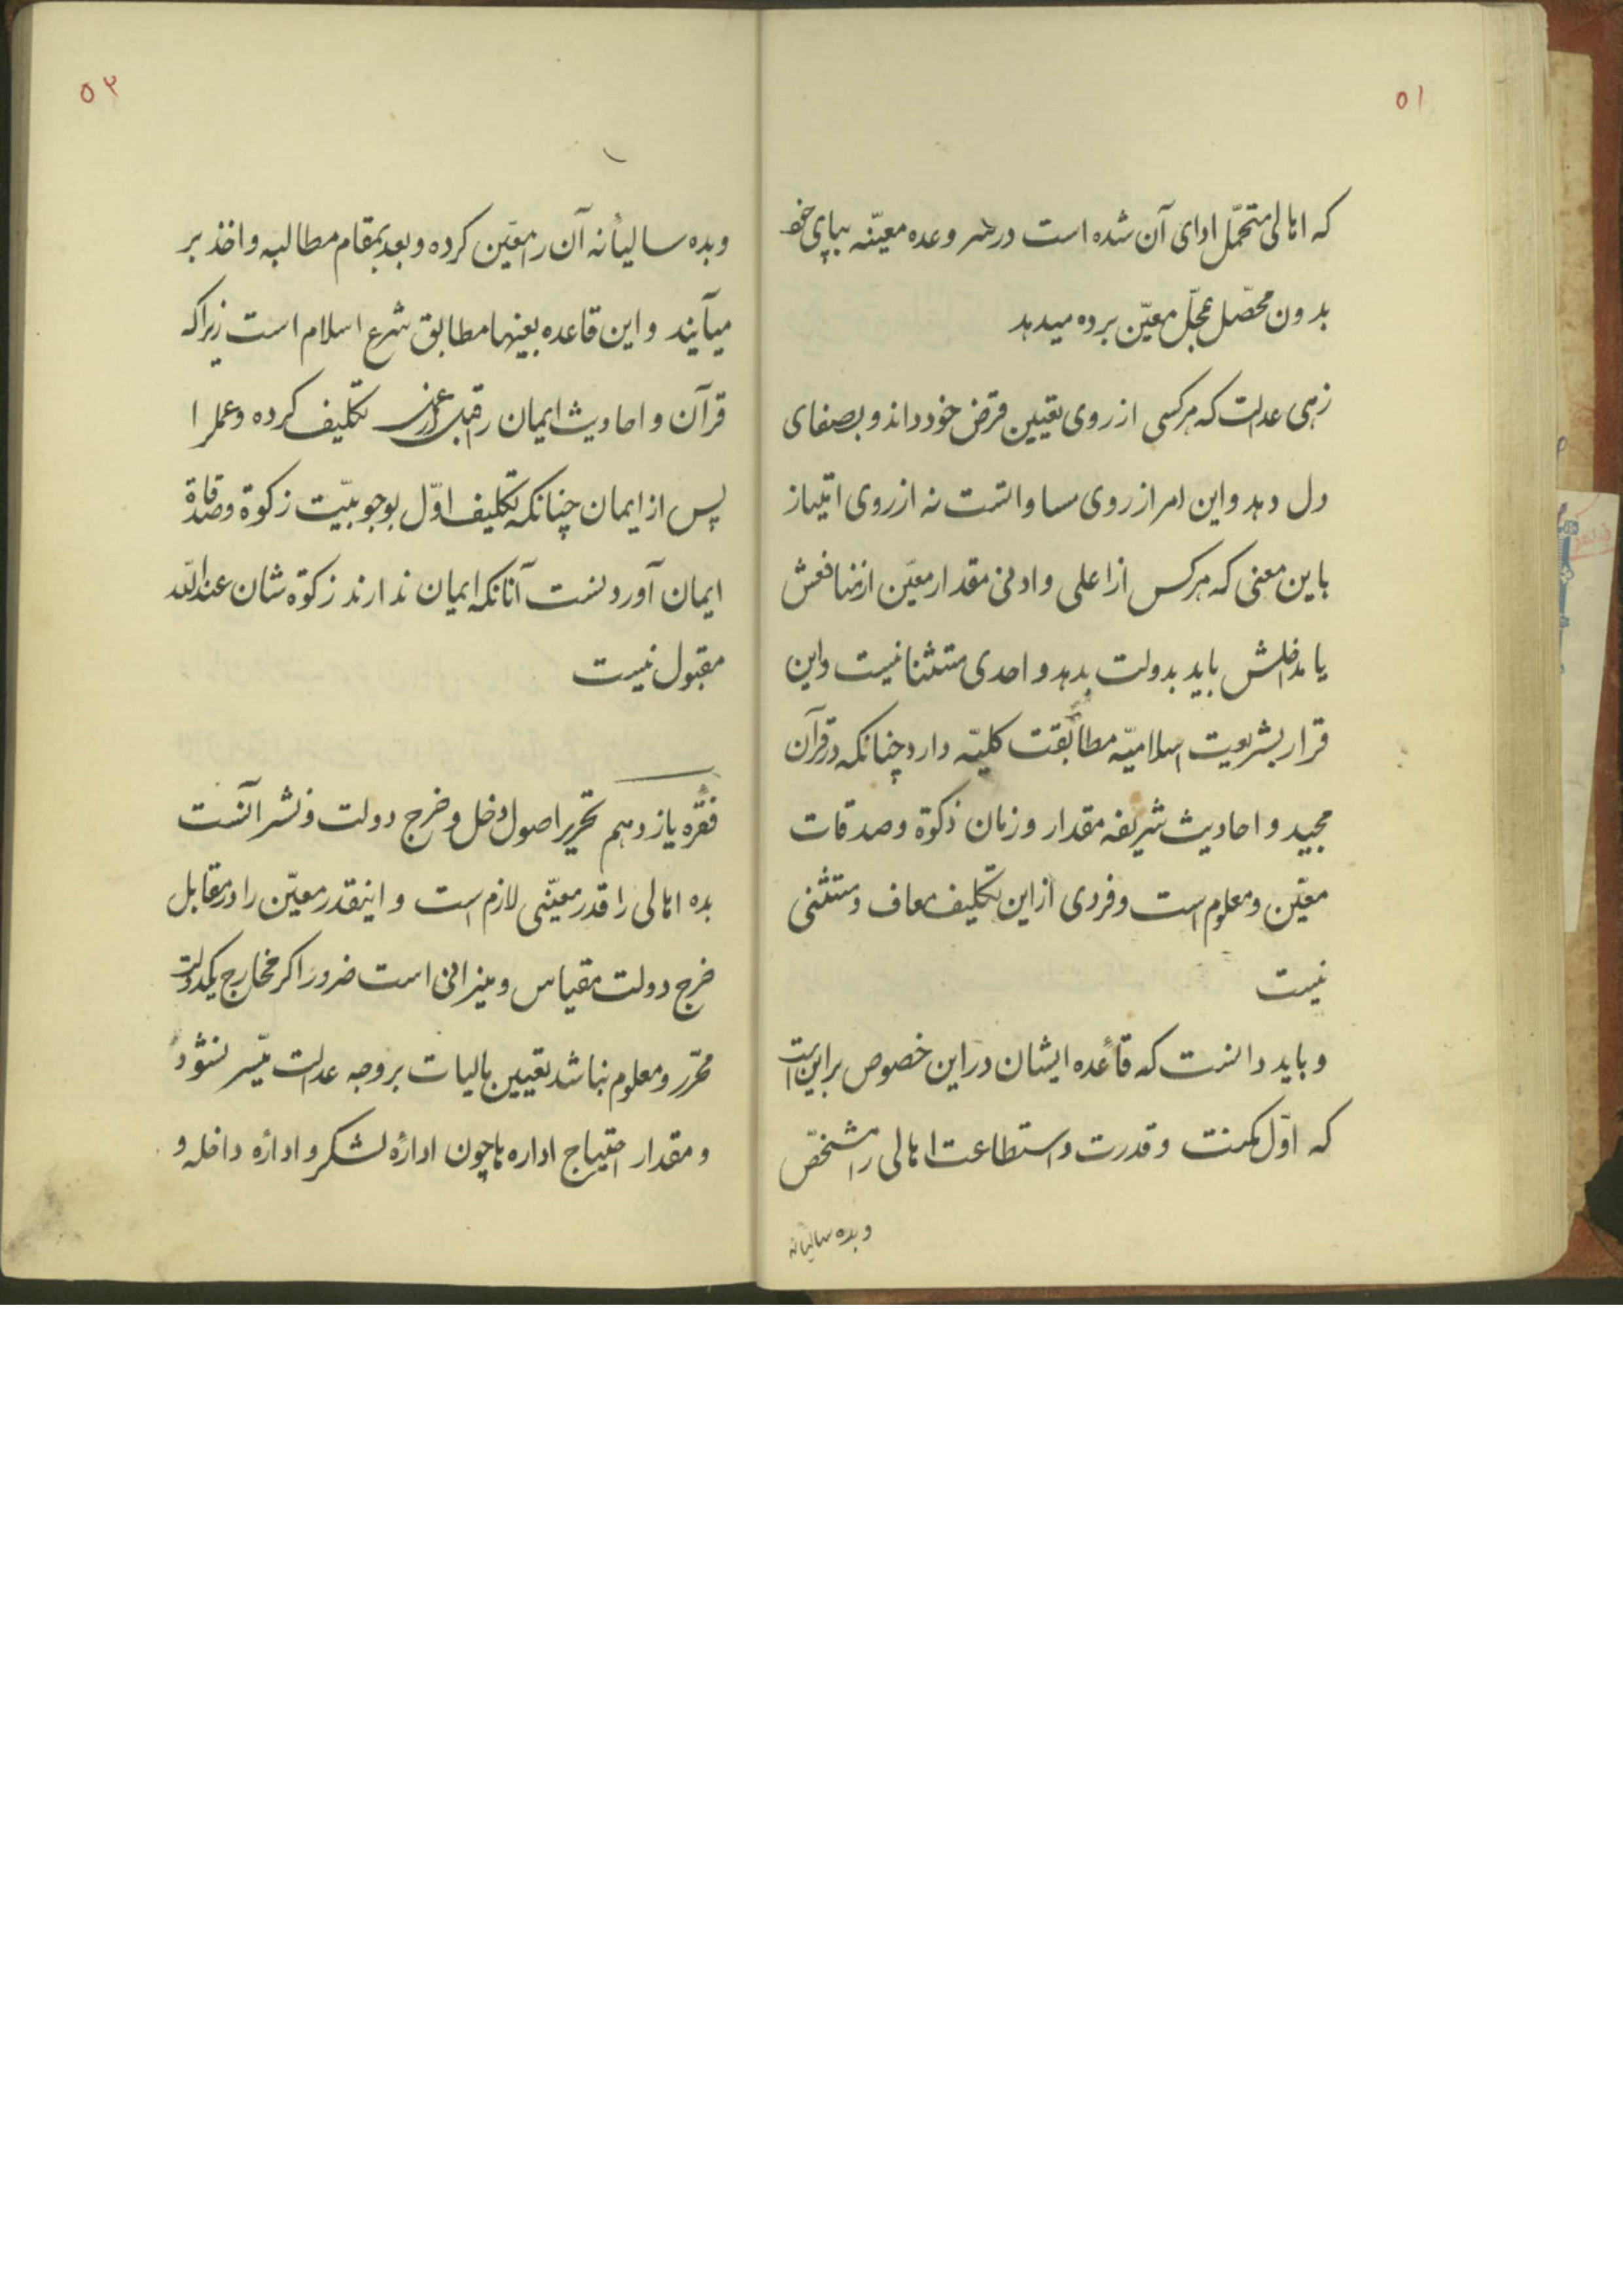 ۵۱
که اهالی متحمّل ادای آن شده است در سر وعده معیّنه بپای خود
بدون محصّل بمحلّ معیّن برده میدهد
زهی عدالت که هرکسی از روی تعیین قرض خود داند و بصفای
دل دهد و این امر از روی مساواتست نه از روی امتیاز
باین معنی که هرکس از اعلی و ادنی مقدار معیّن از منافعش
یا مداخلش باید بدولت بدهد و احدی مستثنا نیست و این
قرار بشریعت اسلامیّه مطابقت کلیّه دارد چنانکه در قرآن
مجید و احادیث شریفه مقدار و زمان ذکوة و صدقات
معیّن و معلوم است و فردی از این تکلیف معاف و مستثنی
نیست
و باید دانست که قاعده ایشان در این خصوص بر این است
که اوّل مکنت و قدرت و استطاعت اهالی را مشخّص
وبده سالیانه
۵۲
وبده سالیانه آن را معیّن کرده و بعد بمقام مطالبه و اخذ بر
میآیند و این قاعده بعینها مطابق شرع اسلام است زیرا که
قرآن و احادیث ایمان را قبل از تکلیف کرده و عمل را
پس از ایمان چنانکه تکلیف اوّل بوجوبیّت زکوة و صدقات
ایمان آوردنست آنانکه ایمان ندارند زکوة شان عندالله
مقبول نیست
فقره یازدهم تحریر اصول دخل و خرج دولت و نشر آنست
بده اهالی را قدر معیّنی لازم است و اینقدر معیّن را در مقابل
خرج دولت مقیاس و میزانی است ضرور اگر مخارج یکدولت
محرّر و معلوم نباشد تعیین مالیات بر وجه عدالت میّسر نشود
و مقدار احتیاج اداره ها چون ادارهٔ لشکر و ادارهٔ داخله و